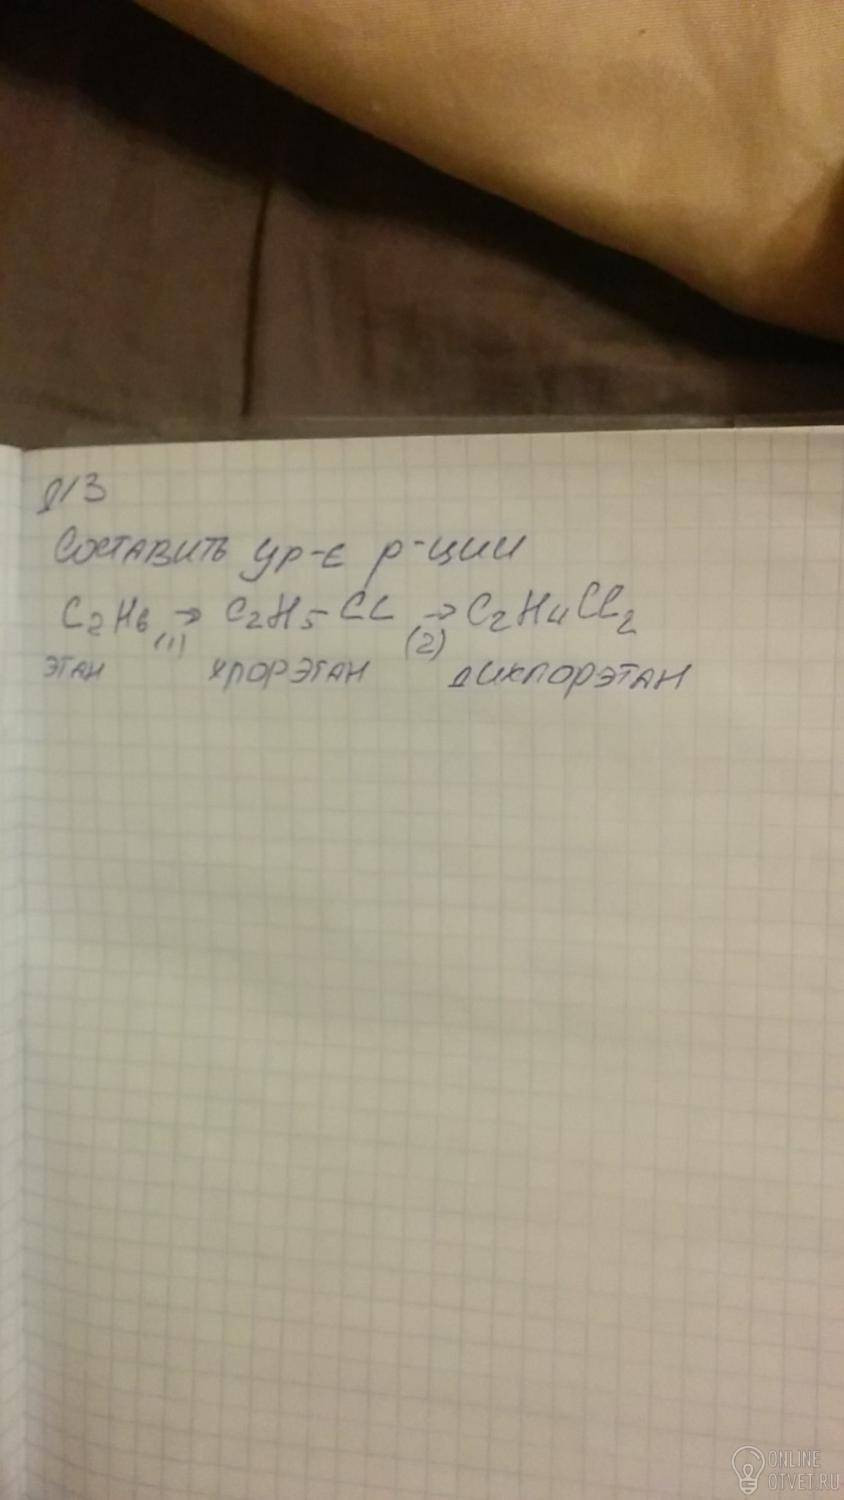 Д/З
Составить ур-е р-ции
C2H6 → C2H5-Cl → C2H4Cl2
(1) (2)
этан хлорэтан дихлорэтан
ONLINE
OTVET.RU